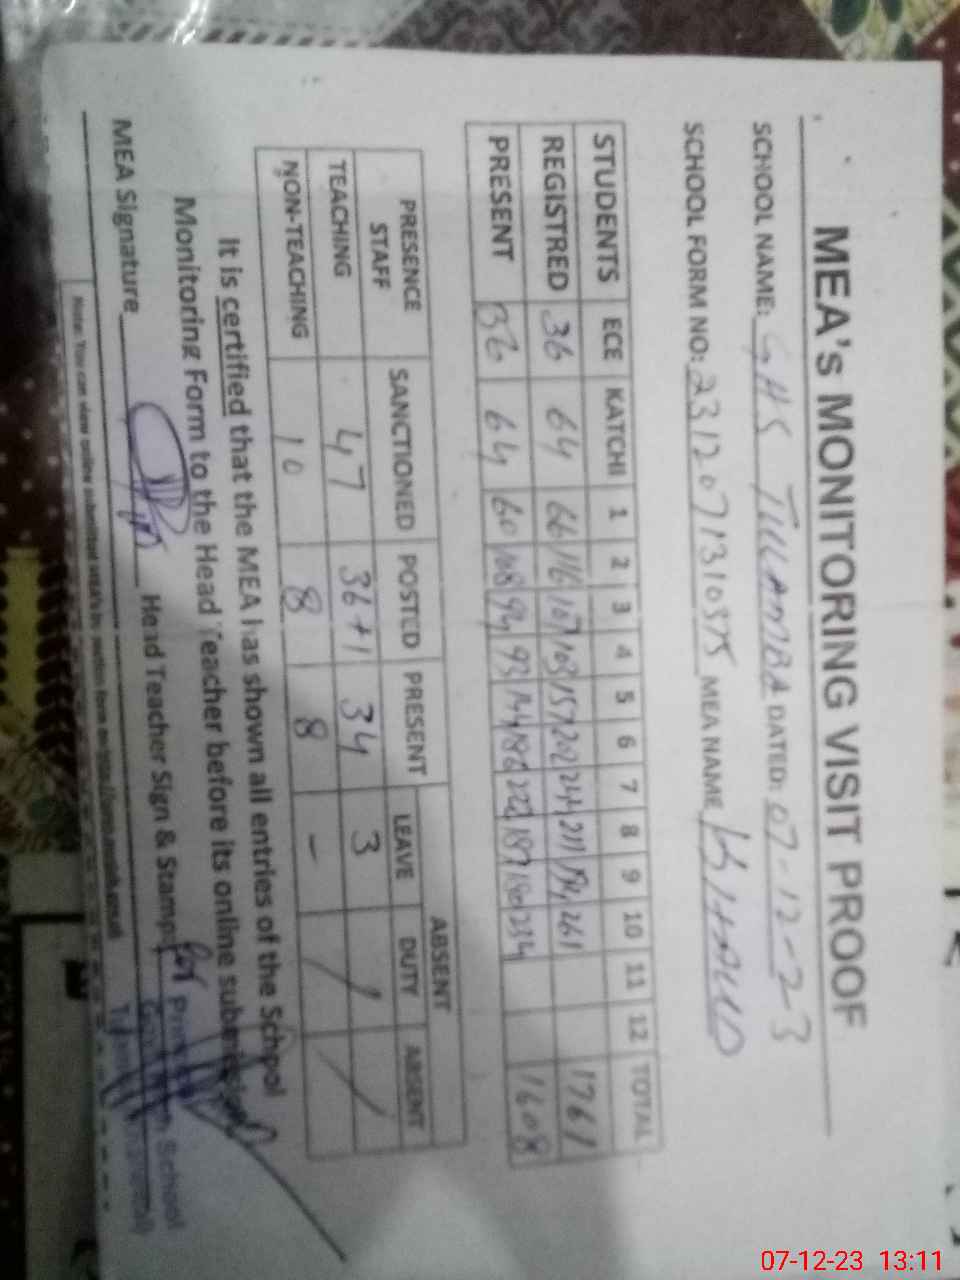 MEA's MONITORING VISIT PROOF
SCHOOL NAME: GHS TULAMBA DATED: 07-12-23
SCHOOL FORM NO: MEA NAME
STUDENTS ECE KATCHI 1 2 3 4 5 6 7 8 9 10 11 12 TOTAL
REGISTRED 36 64 66 116 107 103 157 202 244 211 194 261 1761
PRESENT 36 64 60 108 94 93 144 186 222 187 180 234 1608
PRESENCE ABSENT
STAFF SANCTIONED POSTED PRESENT LEAVE DUTY ABSENT
TEACHING 47 36+1 34 3 /  /
NON-TEACHING 10 8 8 -
It is certified that the MEA has shown all entries of the School
Monitoring Form to the Head Teacher before its online
MEA Signature Head Teacher Sign & Stamp: for
School
Note: You can view online submitted
07-12-23 13:11